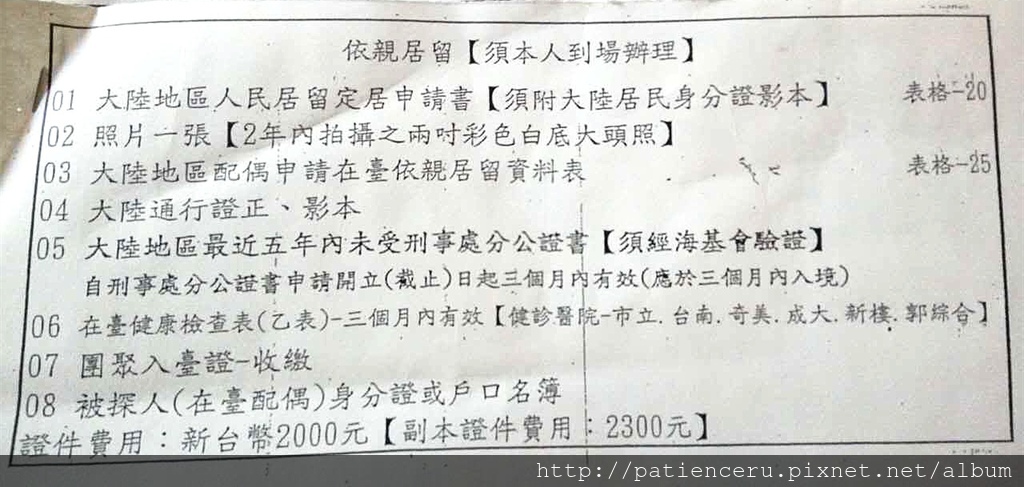 依親居留【須本人到場辦理】
01 大陸地區人民居留定居申請書【須附大陸居民身分證影本】 表格-20
02 照片一張【2年內拍攝之兩吋彩色白底大頭照】
03 大陸地區配偶申請在臺依親居留資料表 表格-25
04 大陸通行證正、影本
05 大陸地區最近五年內未受刑事處分公證書【須經海基會驗證】
自刑事處分公證書申請開立(截止)日起三個月內有效(應於三個月內入境)
06 在臺健康檢查表(乙表)-三個月內有效【健診醫院-市立.台南.奇美.成大.新樓.郭綜合】
07 團聚入臺證-收繳
08 被探人(在臺配偶)身分證或戶口名簿
證件費用：新台幣2000元【副本證件費用：2300元】
http://patienceru.pixnet.net/album